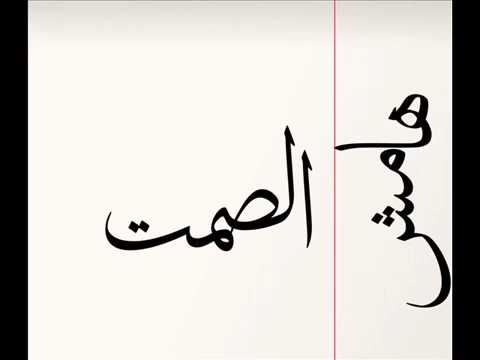 هامش
الصمت